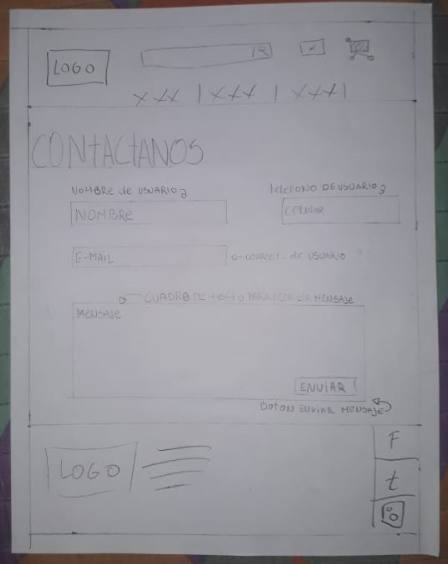 LOGO
xxx | xxx | xxx |
CONTACTANOS
NOMBRE de USUARIO
TELEFONO DE USUARIO
NOMBRE
CELULAR
E-MAIL
CORREO de USUARIO
CUADRO DE TEXTO PARA DEJAR UN MENSAJE
MENSAJE
ENVIAR
BOTON ENVIAR MENSAJE
LOGO
F
t